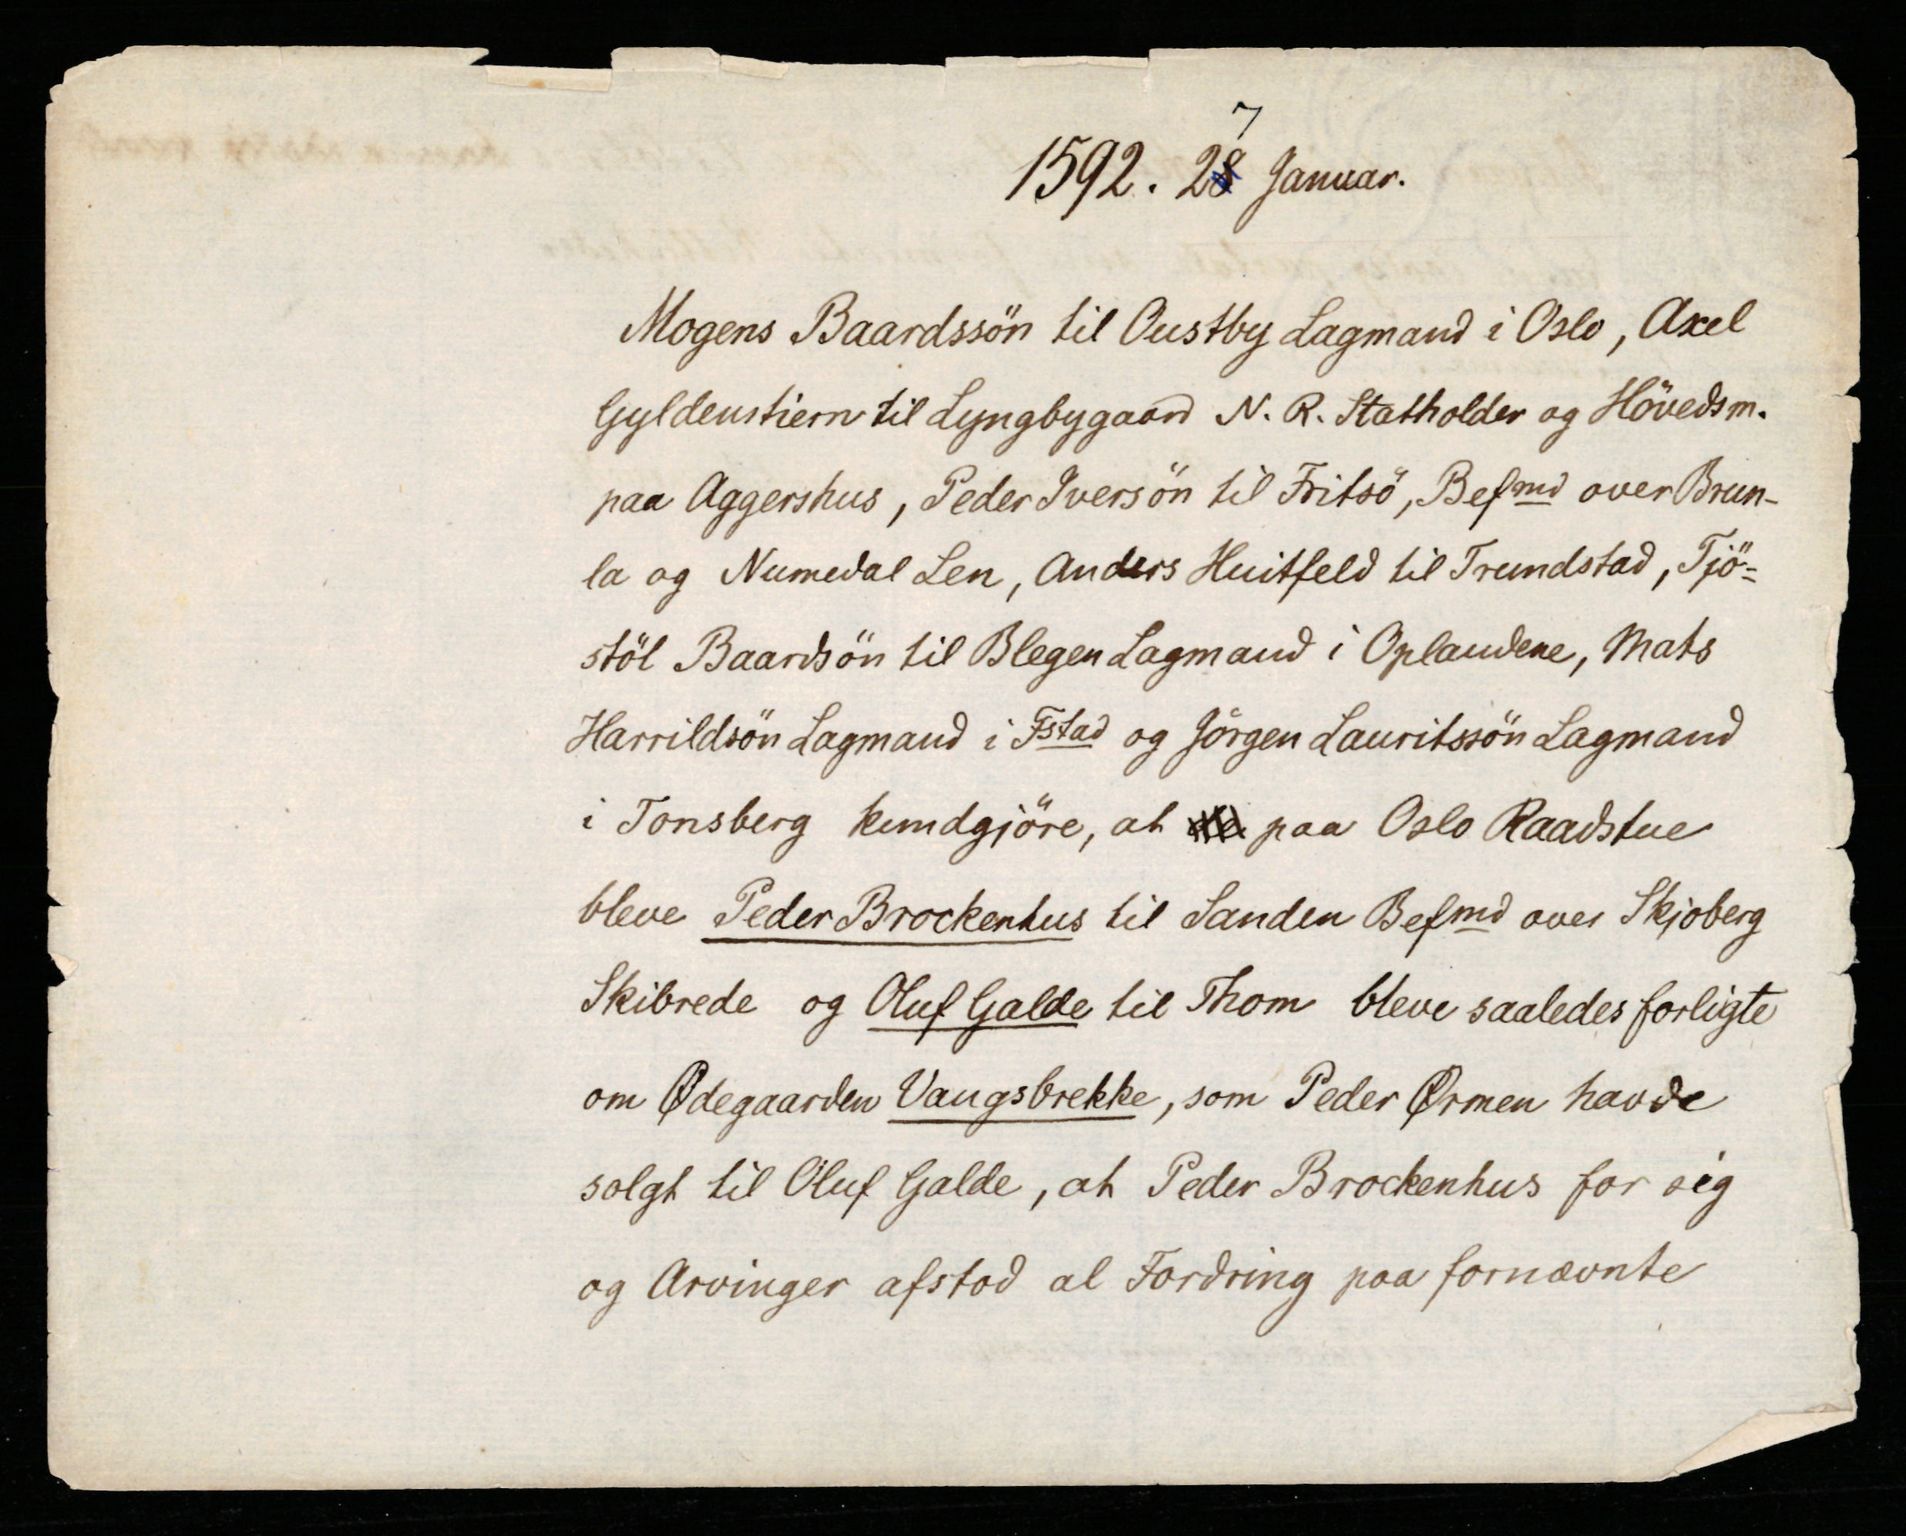 7
1592. 28 Januar.
Mogens Baardssön til Oustby Lagmand i Oslo, Axel
Gyldenstiern til Lyngbygaard N. R. Statholder og Hövedsm.
paa Aggershus, Peder Iversön til Fritsö, Befmd over Brun-
la og Numedal Len, Anders Huitfeld til Trundstad, Tjö=
stöl Baardsön til Blegen Lagmand i Oplandene, Mats
Harrildsön Lagmand i Fstad og Jörgen Lauritssön Lagmand
i Tonsberg kundgjöre, at paa Oslo Raadstue
bleve Peder Brockenhus til Sanden Befmd over Skjoberg
Skibrede og Oluf Galde til Thom bleve saaledes forligte
om Ødegaarden Vangsbrekke, som Peder Ørmen havde
solgt til Oluf Galde, at Peder Brockenhus for sig
og Arvinger afstod al Fordring paa fornævnte